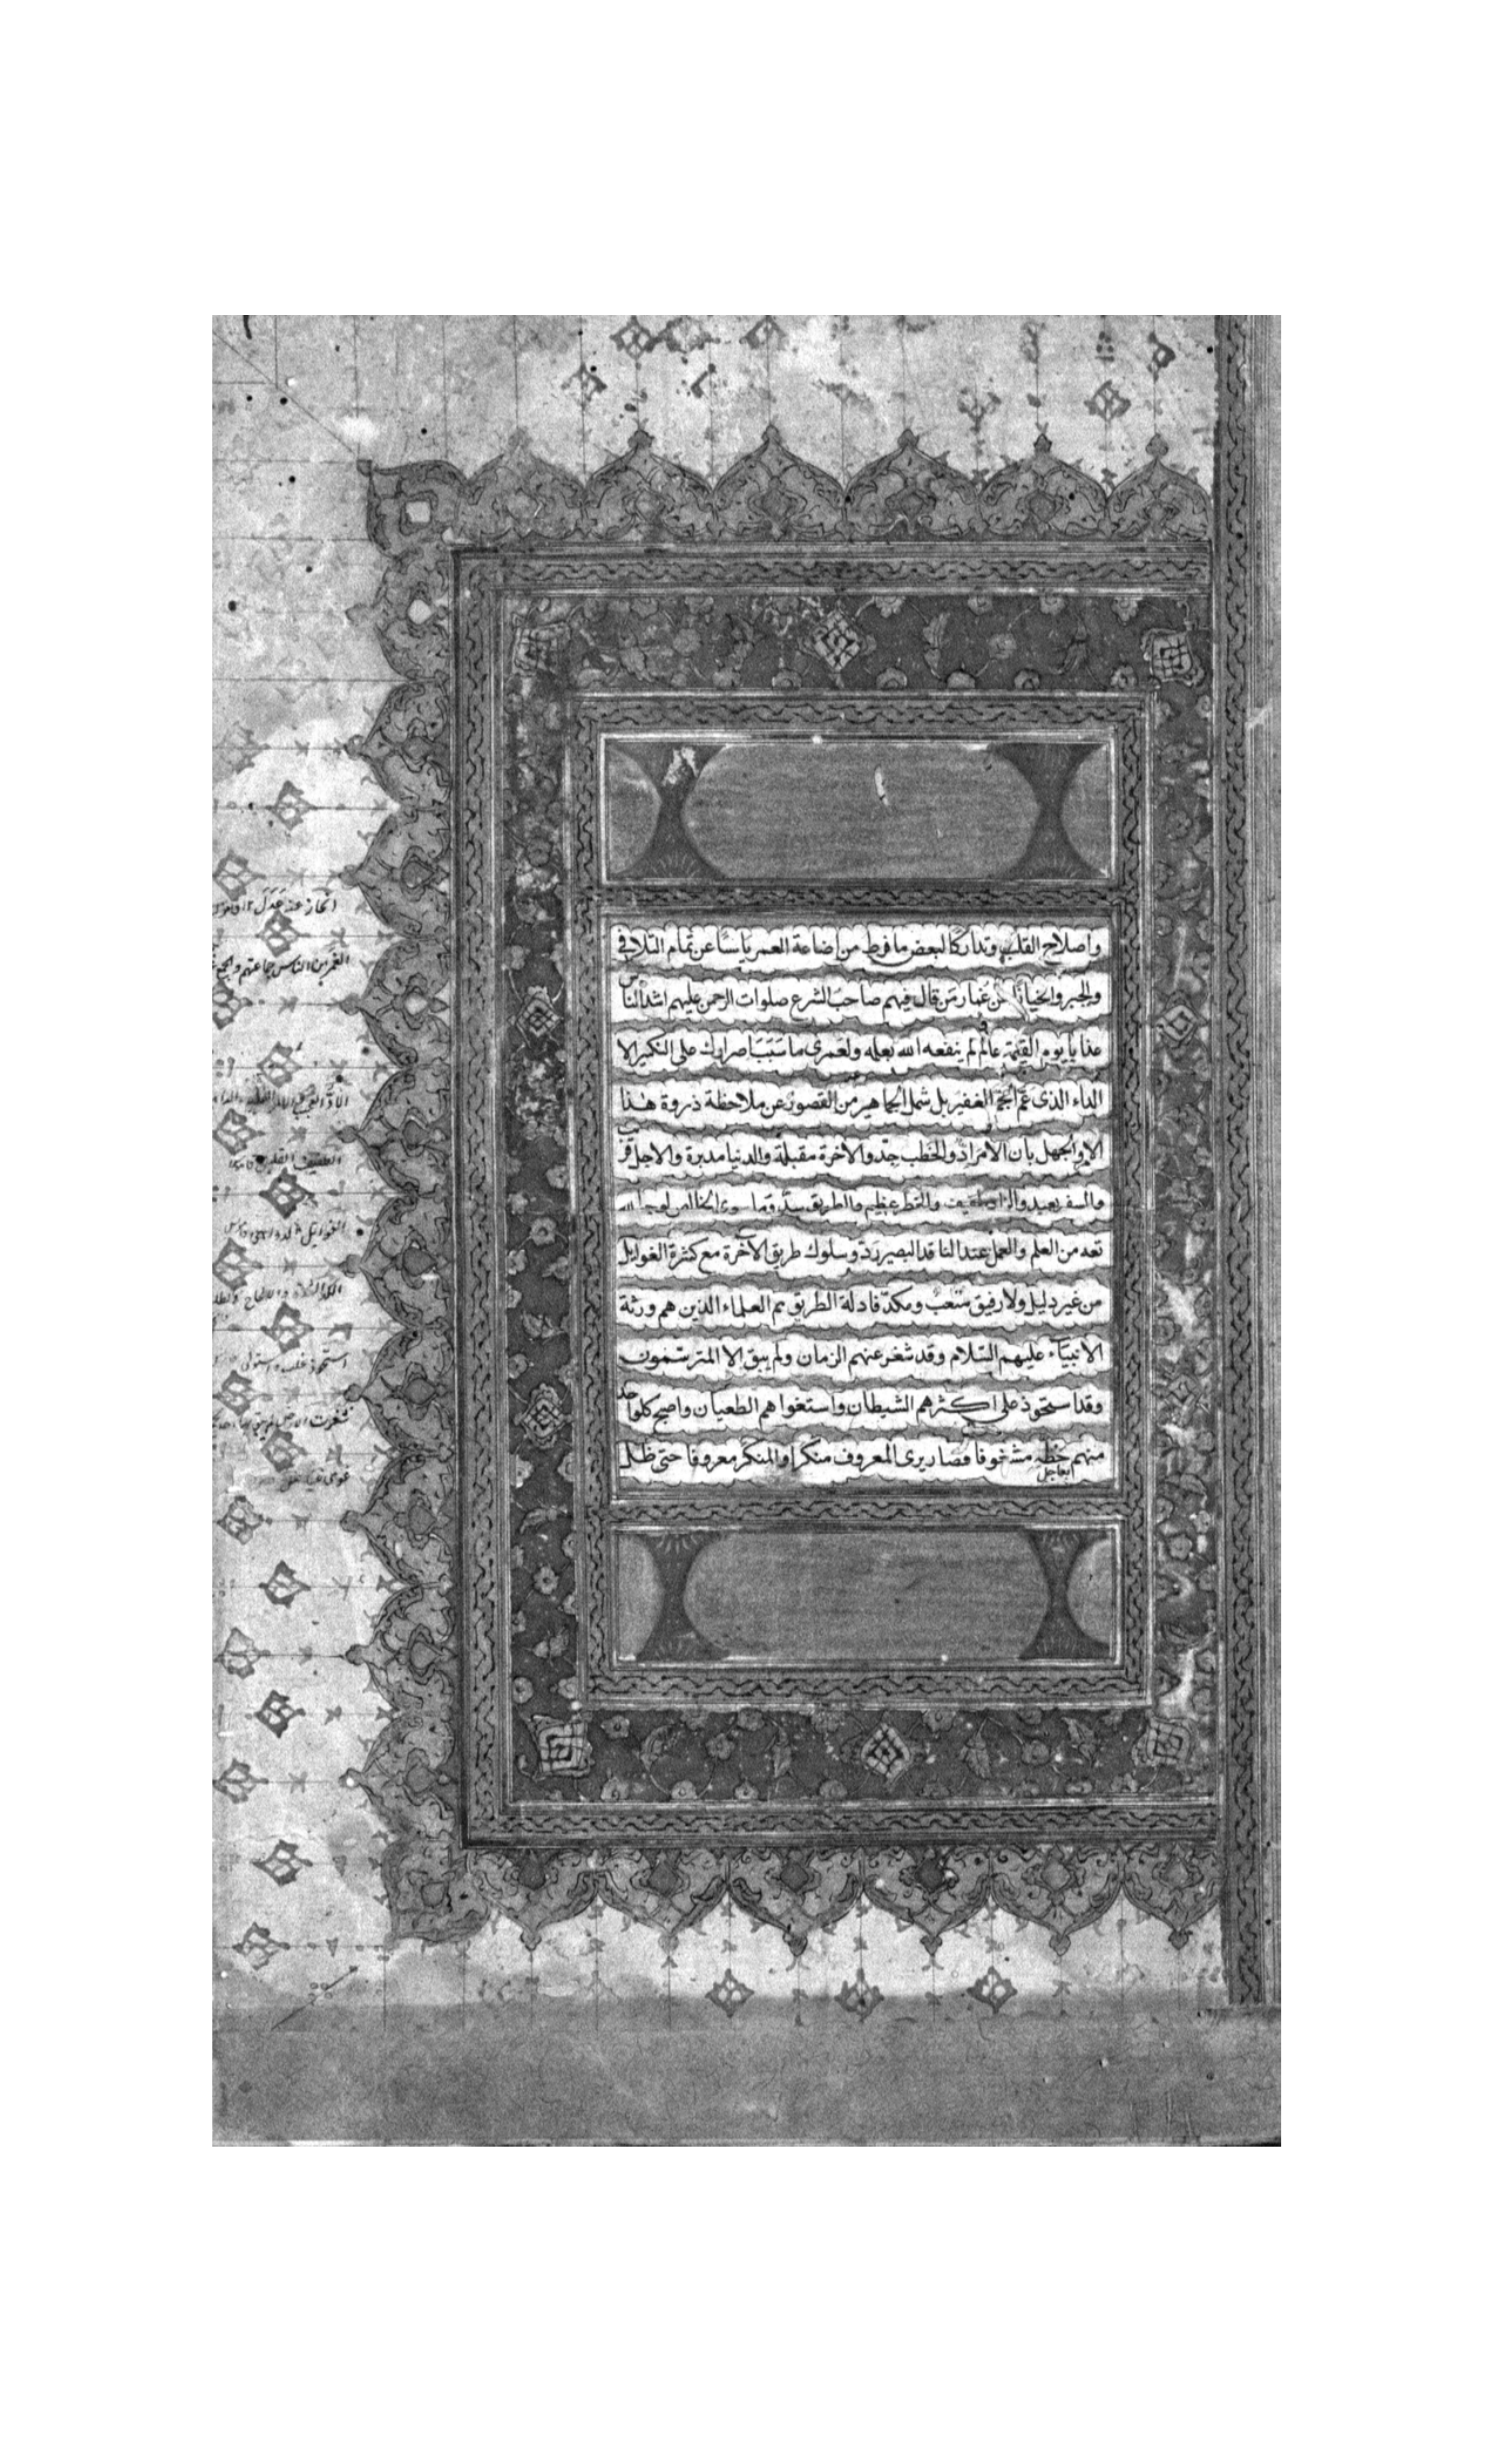 واصلاح القلب وتداركا لبعض ما فرط من اضاعة العمر يائسا عن تمام التلافى
والجبر وانحيازا عن غمار من قال فيهم صاحب الشرع صلوات الرحمن عليهم اشد الناس
عذابا يوم القيمة عالم لم ينفعه الله بعلمه ولعمرى ما سبب اصرارك على النكير الا
الداء الذى عم الجم الغفير بل شمل الجماهير من القصور عن ملاحظة ذروة هذا
الامر والجهل بان الامر اد والخطب جد والاخرة مقبلة والدنيا مدبرة والاجل قريب
والسفر بعيد والزاد طفيف والخطر عظيم والطريق سد وما سوى الخالص لوجه الله
تعه من العلم والعمل عند الناقد البصير رد وسلوك طريق الآخرة مع كثرة الغوايل
من غير دليل ولا رفيق متعب ومكد فادلة الطريق هم العلماء الذين هم ورثة
الانبياء عليهم السلام وقد شغر عنهم الزمان ولم يبق الا المترسمون
وقد استحوذ على اكثرهم الشيطان واستغواهم الطغيان واصبح كل واحد
منهم بعاجل حظه مشغوفا فصار يرى المعروف منكرا والمنكر معروفا حتى ظل
انحاز عنه عدل ١٢ قاموس
الغمر من الناس جماعتهم
استحوذ غلب واستولى